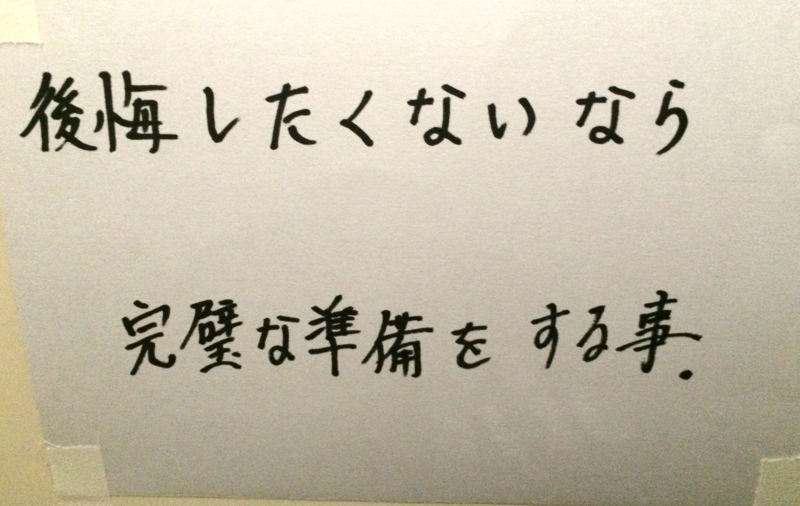 後悔したくないなら
完璧な準備をする事.